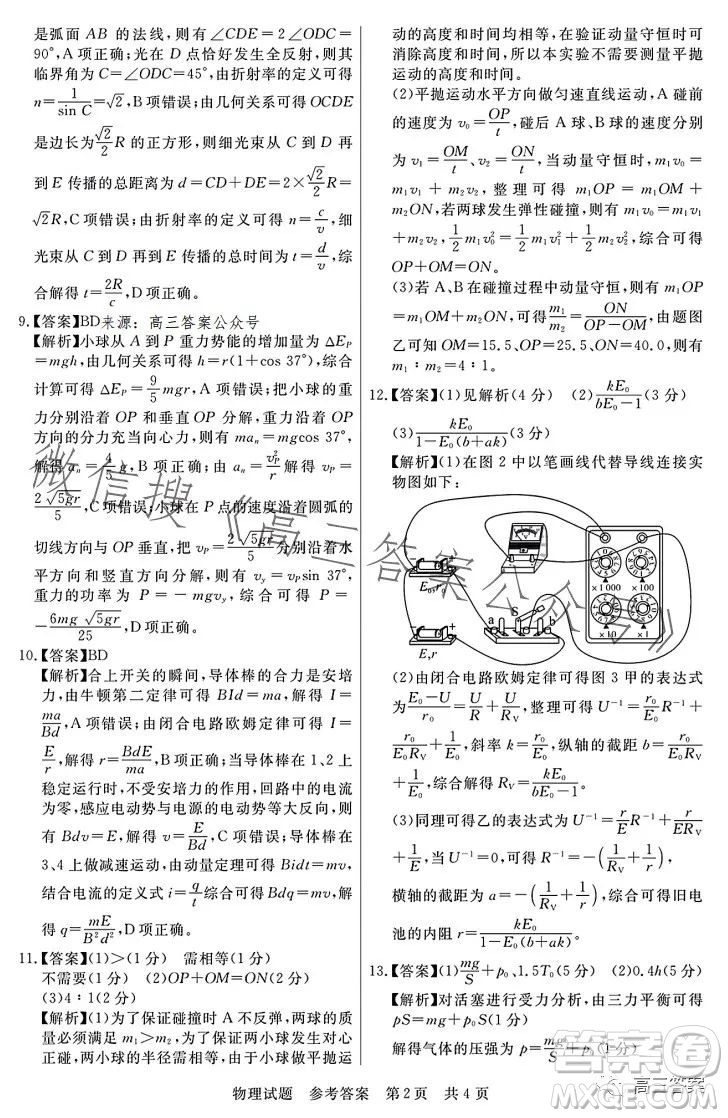 是弧面 AB 的法线,则有∠CDE=2∠ODC=
90°,A项正确;光在 D 点恰好发生全反射,则其
临界角为 C=∠ODC=45°,由折射率的定义可得
n=1/sin C=√2,B项错误;由几何关系可得OCDE
是边长为√2/2 R 的正方形,则细光束从 C 到 D 再
到 E 传播的总距离为 d=CD+DE=2×√2/2 R=
√2R,C项错误;由折射率的定义可得 n=c/v,细
光束从 C 到 D 再到 E 传播的总时间为 t=d/v,综
合解得 t=2R/c,D项正确。
9.【答案】BD来源:高三答案公众号
【解析】小球从 A 到 P 重力势能的增加量为 ΔEP=
mgh,由几何关系可得 h=r(1+cos 37°),综合
计算可得 ΔEP=9/5 mgr,A项错误;把小球的重
力分别沿着 OP 和垂直 OP 分解,重力沿着 OP
方向的分力充当向心力,则有 man=mgcos 37°,
解得 an=4/5 g,B项正确;由 an=vP²/r 解得 vP=
2√5gr/5,C项错误;小球在 P 点的速度沿着圆弧的
切线方向与 OP 垂直,把 vP=2√5gr/5分别沿着水
平方向和竖直方向分解,则有 vy=vPsin 37°,
重力的功率为 P=-mgvy,综合可得 P=
-6mg√5gr/25,D项正确。
10.【答案】BD
【解析】合上开关的瞬间,导体棒的合力是安培
力,由牛顿第二定律可得 BId=ma,解得 I=
ma/Bd,A项错误;由闭合电路欧姆定律可得 I=
E/r,解得 r=BdE/ma,B项正确;当导体棒在1、2上
稳定运动时,不受安培力的作用,回路中的电流
为零,感应电动势与电源的电动势大小相等,则
有 Bdv=E,解得 v=E/Bd,C项错误;导体棒在
3、4上做减速运动,由动量定理可得 Bidt=mv,
结合电流的定义式 i=q/t综合可得 Bdq=mv,解
得 q=mE/B²d²,D项正确。
11.【答案】(1)>(1分) 需相等(1分)
不需要(1分) (2)OP+OM=ON(2分)
(3)4∶1(2分)
【解析】(1)为了保证碰撞时 A 不反弹,两球的质
量必须满足 m1>m2,为了保证两小球发生对心
正碰,两小球的半径需相等,由于小球做平抛运
动的高度和时间均相等,在验证动量守恒时可
消除高度和时间,所以本实验不需要测量平抛
运动的高度和时间。
(2)平抛运动水平方向做匀速直线运动,A碰前
的速度为 v0=OP/t,碰后A球、B球的速度分别
为 v1=OM/t、v2=ON/t,当动量守恒时,m1v0=
m1v1+m2v2,整理可得 m1OP=m1OM+
m2ON;若两球发生弹性碰撞,则有 m1v0=m1v1
+m2v2,1/2 m1v0²=1/2 m1v1²+1/2 m2v2²,综合可得
OP+OM=ON。
(3)若A、B在碰撞过程中动量守恒,则有 m1OP
=m1OM+m2ON,综合可得m1/m2=ON/(OP-OM),由题图
乙可知 OM=15.5、OP=25.5、ON=40.0,则有
m1∶m2=4∶1。
12.【答案】(1)见解析(4分) (2)kE0/(bE0-1)(3分)
(3)kE0/(1-E0(b+ak))(3分)
【解析】(1)在图2中以笔画线代替导线连接实
物图如下:
E0,r0
S
a b
E,r
×1 000 ×100
×10 ×1
(2)由闭合电路欧姆定律可得图3甲的表达式
为(E0-U)/r0=U/R+U/RV,整理可得 U⁻¹=r0/E0 R⁻¹+
r0/(E0RV)+1/E0,斜率 k=r0/E0,纵轴的截距 b=r0/(E0RV)
+1/E0,综合解得 RV=kE0/(bE0-1)。
(3)同理可得乙的表达式为U⁻¹=r/E R⁻¹+r/(ERV)
+1/E,当 U⁻¹=0,可得 R⁻¹=-(1/RV+1/r),
横轴的截距为 a=-(1/RV+1/r),综合可得旧电
池的内阻 r=kE0/(1-E0(b+ak))。
13.【答案】(1)mg/S+p0、1.5T0(5分) (2)0.4h(5分)
【解析】对活塞进行受力分析,由三力平衡可得
pS=mg+p0S(1分)
解得气体的压强为 p=mg/S+p0(1分)
微信搜《高三答案公众号》
物理试题 参考答案 第2页 共4页
高三答案